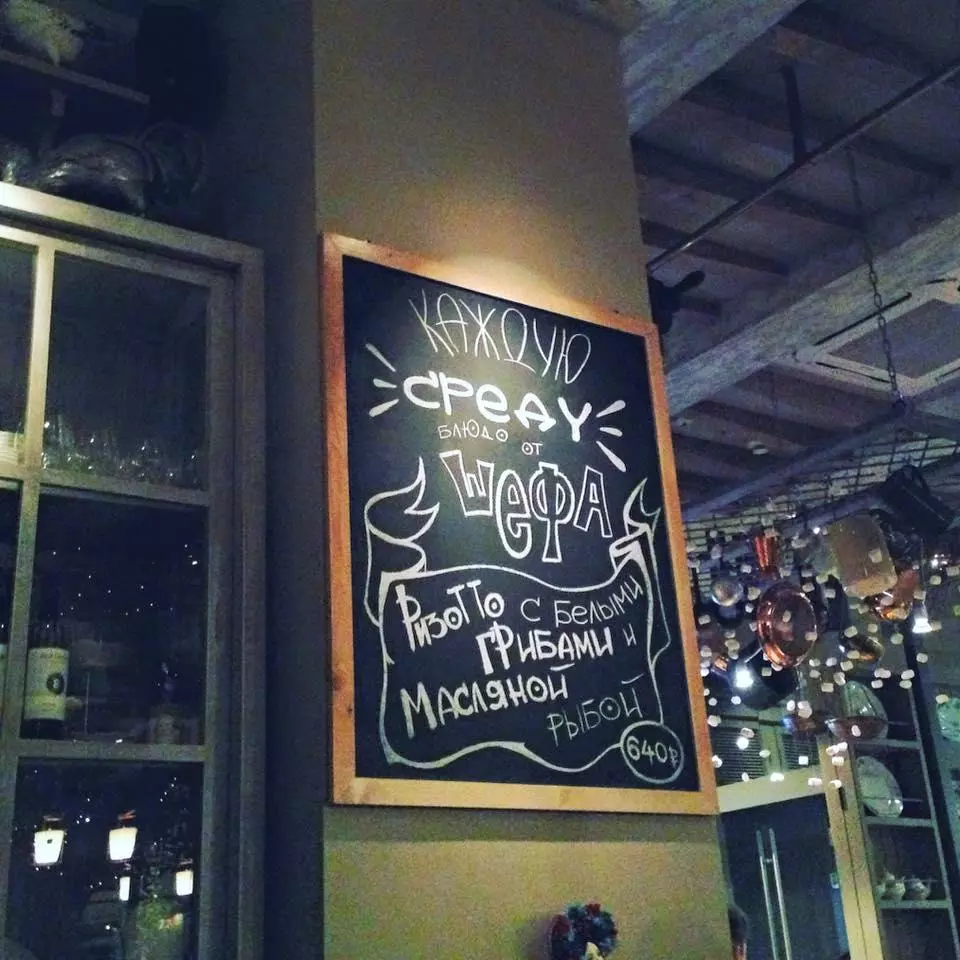 КАЖДУЮ
СРЕДУ
БЛЮДО ОТ
ШЕФА
РИЗОТТО С БЕЛЫМИ
ГРИБАМИ И
МАСЛЯНОЙ
РЫБОЙ
640₽